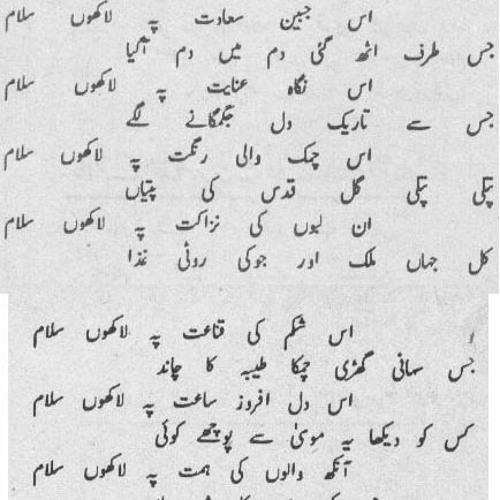 اس جبین سعادت پہ لاکھوں سلام
جس طرف اٹھ گئی دم میں دم آگیا
اس نگاہ عنایت پہ لاکھوں سلام
جس سے تاریک دل جگمگانے لگے
اس چمک والی رنگت پہ لاکھوں سلام
پتلی پتلی گل قدس کی پتیاں
ان لبوں کی نزاکت پہ لاکھوں سلام
کل جہاں ملک اور جوکی روٹی غذا
اس شکم کی قناعت پہ لاکھوں سلام
جس سہانی گھڑی چمکا طیبہ کا چاند
اس دل افروز ساعت پہ لاکھوں سلام
کس کو دیکھا یہ موسیٰ سے پوچھے کوئی
آنکھ والوں کی ہمت پہ لاکھوں سلام